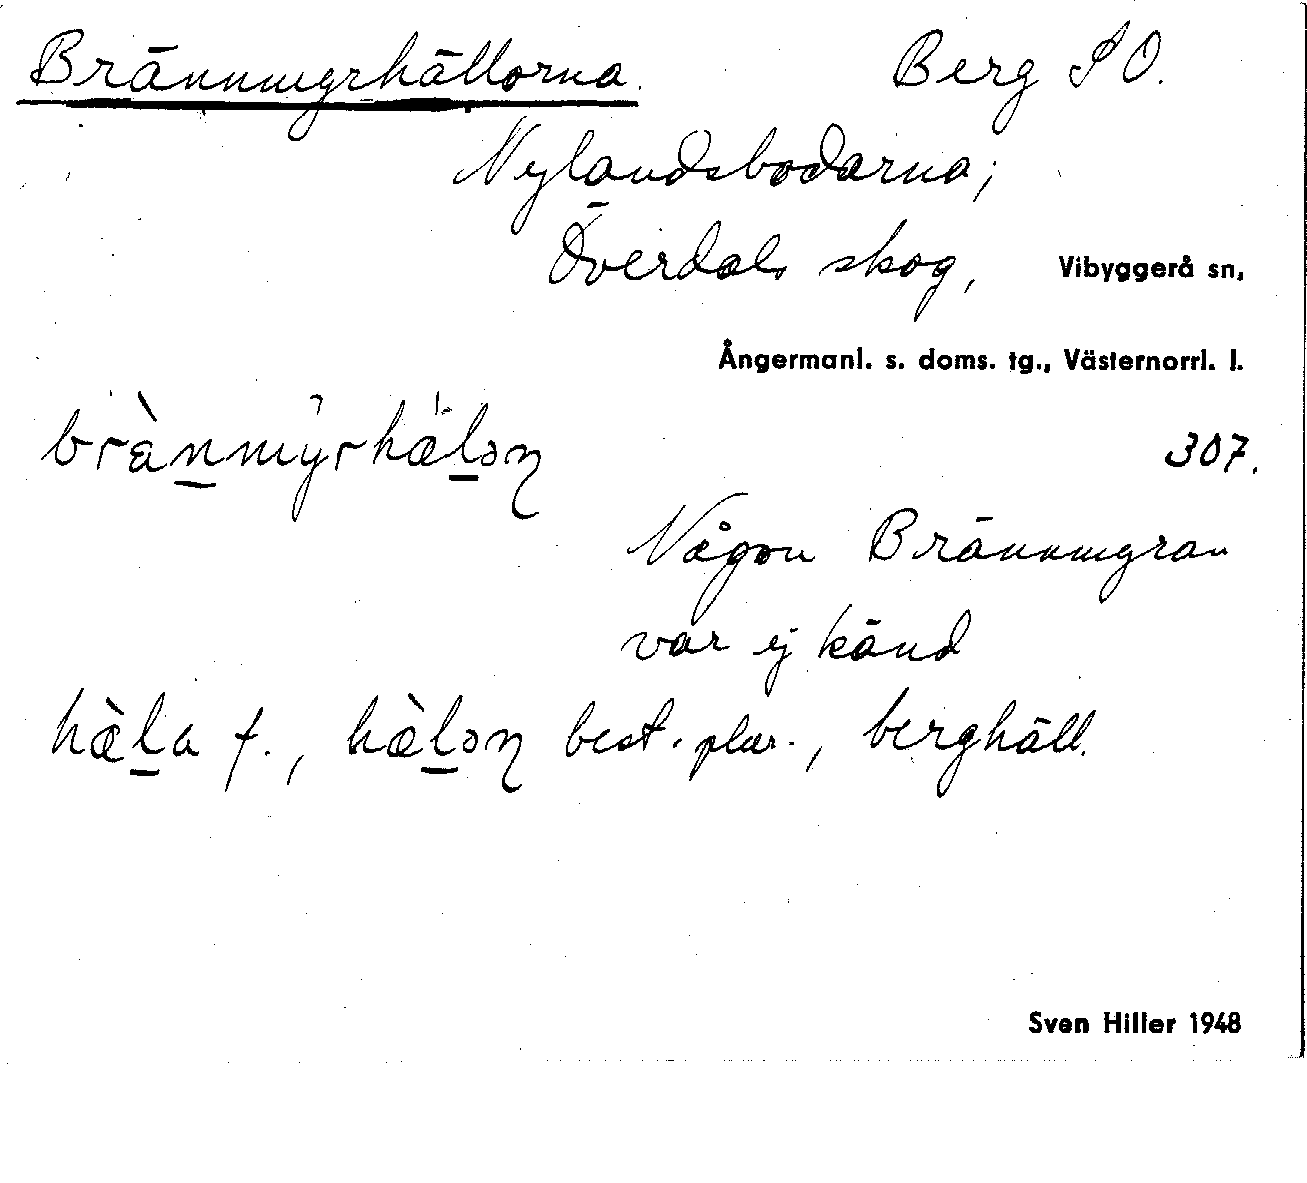 Brännmyrhällorna. Berg SO.
Nylandsbodarna;
Överdals skog, Vibyggerå sn,
Ångermanl. s. doms. tg., Västernorrl. l.
brànmýrhæ̀ləɳ 307.
Någon Brännmyran
var ej känd
hæ̀la f., hæ̀ləɳ best. plur., berghäll.
Sven Hiller 1948